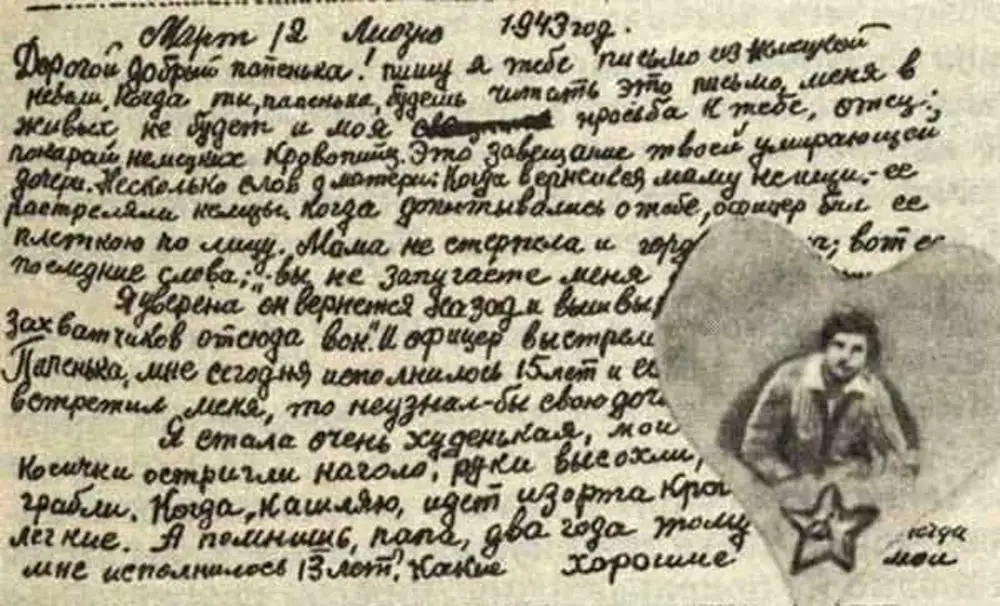 Март 12 Лиозно 1943 год.
Дорогой добрый папенька! пишу я тебе письмо из немецкой
неволи. Когда ты, папенька, будешь читать это письмо, меня в
живых не будет и моя просьба к тебе, отец:
покарай немецких кровопийц. Это завещание твоей умирающей
дочери. Несколько слов о матери: Когда вернешься маму не ищи.- ее
растреляли немцы. Когда допытывались о тебе, офицер бил ее
плеткою по лицу. Мама не стерпела и горд а; вот ее
последние слова: "вы не запугаете меня
Я уверена он вернется назад и вышвыр
захватчиков отсюда вон". И офицер выстрели
Папенька, мне сегодня исполнилось 15 лет и ес
встретил меня, то неузнал-бы свою доч
Я стала очень худенькая, мои
косички остригли наголо, руки высохли,
грабли. Когда, кашляю, идет изорта кро
легкие. А помнишь, папа, два года тому когда
мне исполнилось 13 лет? Какие хорошие мои